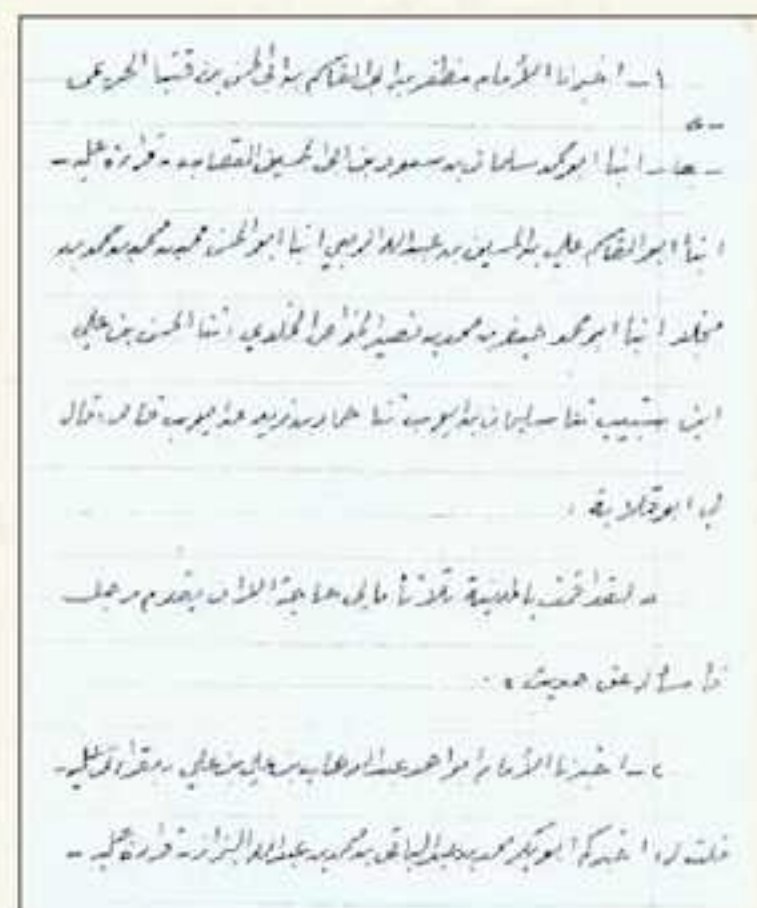 ١ـ اخبرنا الأمام مظفر بن ابي القاسم بن ابي الحسن بن
ـ انبا ابو محمد سلمان بن مسعود بن ابي الحسين القصاب ـ قراءة عليه ـ
انبا ابو القاسم علي بن الحسين بن عبدالله الربعي انبا ابو الحسن محمد بن محمد بن محمد بن
مخلد انبا ابو محمد جعفر بن محمد بن نصير الخواص الخلدي انبا الحسن بن علي
ابن شبيب ثنا سليمان بن ايوب ثنا حماد بن زيد عن ايوب قال: قال
لي ابو قلابة :
« لقد اقمت بالمدينة ثلاثاً مالي حاجة الا ان يقدم رجل
فأسأله عن حديث » .
٢ـ اخبرنا الأمام ابو احمد عبد الوهاب بن علي بن علي ـ بقراءتي عليه ـ
قلت له: اخبركم ابو بكر محمد بن عبد الباقي بن محمد بن عبدالله البزاز ـ قراءة عليه ـ